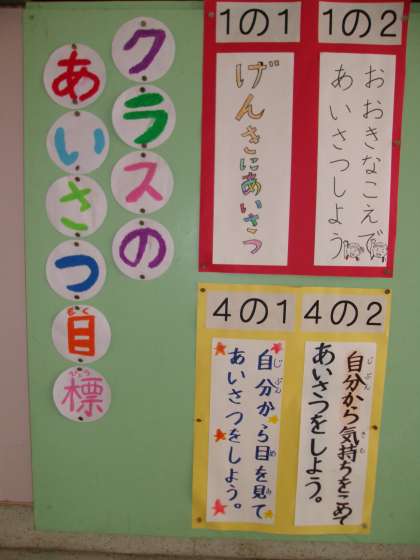 クラスの
あいさつ目標
もくひょう
1の1
げんきにあいさつ
1の2
おおきなこえで
あいさつしよう
4の1
自分から目を見て
じぶん め み
あいさつをしよう。
4の2
自分から気持ちをこめて
じぶん きも
あいさつをしよう。